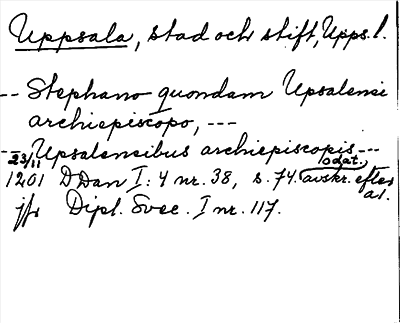 Uppsala, stad och stift, Upps. l.
-- Stephano quondam Upsalensi
archiepiscopo, ---
-- Upsalensibus archiepiscopis ---
23/11 odat.,
1201 D Dan I: 4 nr. 38, s. 74. (avskr. efter
a.)
jfr Dipl. Svec. I nr. 117.